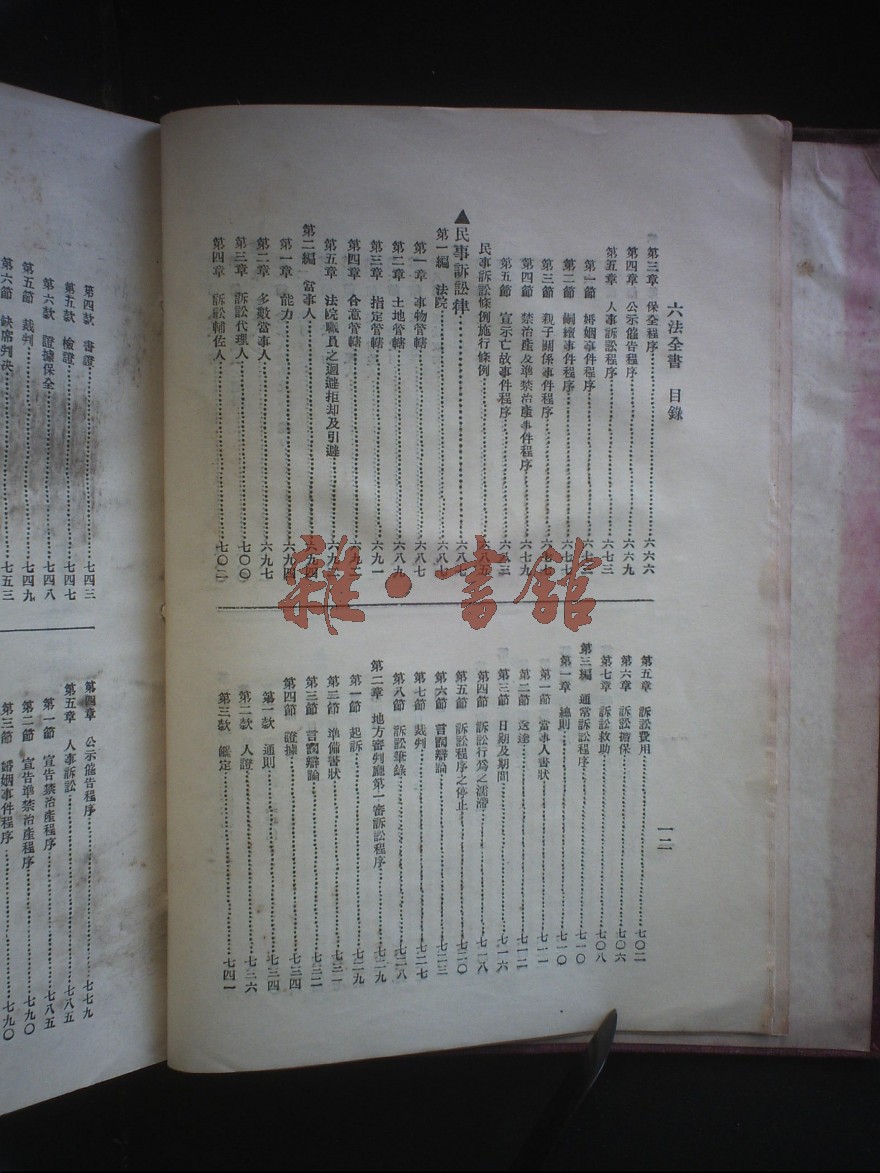 六法全書 目錄
一二
第三章 保全程序……六六六
第四章 公示催告程序……六六九
第五章 人事訴訟程序……六七三
第一節 婚姻事件程序……六七三
第二節 嗣續事件程序……六七七
第三節 親子關係事件程序……六七七
第四節 禁治產及準禁治產事件程序……六七九
第五節 宣示亡故事件程序……六八三
民事訴訟條例施行條例……六八五
▲民事訴訟律……六八七
第一編 法院……六八七
第一章 事物管轄……六八七
第二章 土地管轄……六八九
第三章 指定管轄……六九一
第四章 合意管轄……六九
第五章 法院職員之迴避拒却及引避……六九
第二編 當事人……六九四
第一章 能力……六九四
第二章 多數當事人……六九七
第三章 訴訟代理人……七〇〇
第四章 訴訟輔佐人……七〇二
第五章 訴訟費用……七〇二
第六章 訴訟擔保……七〇六
第七章 訴訟救助……七〇八
第三編 通常訴訟程序……七一〇
第一章 總則……七一〇
第一節 當事人書狀……七一一
第二節 送達……七一二
第三節 日期及期間……七一六
第四節 訴訟行爲之濡滯……七一八
第五節 訴訟程序之停止……七二〇
第六節 言詞辯論……七二三
第七節 裁判……七二七
第八節 訴訟筆錄……七二八
第二章 地方審判廳第一審訴訟程序……七二九
第一節 起訴……七二九
第二節 準備書狀……七三一
第三節 言詞辯論……七三二
第四節 證據……七三四
第一款 通則……七三四
第二款 人證……七三六
第三款 鑑定……七四一
第四款 書證……七四三
第五款 檢證……七四七
第六款 證據保全……七四八
第五節 裁判……七四九
第六節 缺席判決……七五三
第四章 公示催告程序……七七九
第五章 人事訴訟……七八五
第一節 宣告禁治產程序……七八五
第二節 宣告準禁治產程序……七九〇
第三節 婚姻事件程序……七九〇
雜·書館